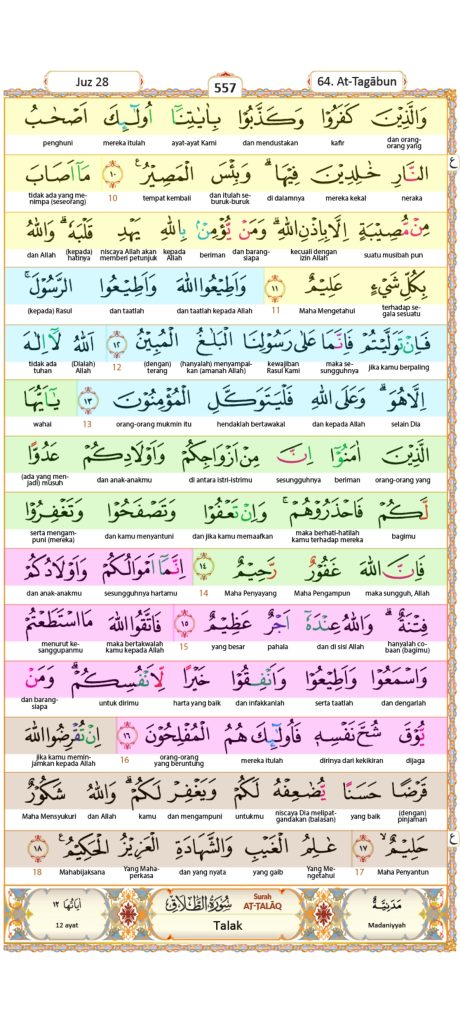 Juz 28
557
64. At-Tagābun
وَالَّذِيْنَ كَفَرُوْا وَكَذَّبُوْا بِاٰيٰتِنَآ اُولٰۤىِٕكَ اَصْحٰبُ
dan orang-orang yang kafir dan mendustakan ayat-ayat Kami mereka itulah penghuni
ع
النَّارِ خٰلِدِيْنَ فِيْهَاۗ وَبِئْسَ الْمَصِيْرُ ࣖ ١٠ مَآ اَصَابَ
neraka mereka kekal di dalamnya dan itulah seburuk-buruk tempat kembali 10 tidak ada yang menimpa (seseorang)
مِنْ مُّصِيْبَةٍ اِلَّا بِاِذْنِ اللّٰهِ ۗوَمَنْ يُّؤْمِنْۢ بِاللّٰهِ يَهْدِ قَلْبَهٗ ۗوَاللّٰهُ
suatu musibah pun kecuali dengan izin Allah dan barang-siapa beriman kepada Allah niscaya Allah akan memberi petunjuk (kepada) hatinya dan Allah
بِكُلِّ شَيْءٍ عَلِيْمٌ ١١ وَاَطِيْعُوا اللّٰهَ وَاَطِيْعُوا الرَّسُوْلَۚ
terhadap segala sesuatu Maha Mengetahui 11 dan taatlah kepada Allah dan taatlah (kepada) Rasul
فَاِنْ تَوَلَّيْتُمْ فَاِنَّمَا عَلٰى رَسُوْلِنَا الْبَلٰغُ الْمُبِيْنُ ١٢ اَللّٰهُ لَآ اِلٰهَ
jika kamu berpaling maka se-sungguhnya kewajiban Rasul Kami (hanyalah) menyampai-kan (amanah Allah) (dengan) terang 12 (Dialah) Allah tidak ada tuhan
اِلَّا هُوَۗ وَعَلَى اللّٰهِ فَلْيَتَوَكَّلِ الْمُؤْمِنُوْنَ ١٣ يٰٓاَيُّهَا
selain Dia dan kepada Allah hendaklah bertawakal orang-orang mukmin itu 13 wahai
الَّذِيْنَ اٰمَنُوْٓا اِنَّ مِنْ اَزْوَاجِكُمْ وَاَوْلَادِكُمْ عَدُوًّا
orang-orang yang beriman sesungguhnya di antara istri-istrimu dan anak-anakmu (ada yang men-jadi) musuh
لَّكُمْ فَاحْذَرُوْهُمْۚ وَاِنْ تَعْفُوْا وَتَصْفَحُوْا وَتَغْفِرُوْا
bagimu maka berhati-hatilah kamu terhadap mereka dan jika kamu memaafkan dan kamu menyantuni serta mengam-puni (mereka)
فَاِنَّ اللّٰهَ غَفُوْرٌ رَّحِيْمٌ ١٤ اِنَّمَآ اَمْوَالُكُمْ وَاَوْلَادُكُمْ
maka sungguh, Allah Maha Pengampun Maha Penyayang 14 sesungguhnya hartamu dan anak-anakmu
فِتْنَةٌ ۗوَاللّٰهُ عِنْدَهٗٓ اَجْرٌ عَظِيْمٌ ١٥ فَاتَّقُوا اللّٰهَ مَا اسْتَطَعْتُمْ
hanyalah co-baan (bagimu) dan di sisi Allah pahala yang besar 15 maka bertakwalah kamu kepada Allah menurut ke-sanggupanmu
وَاسْمَعُوْا وَاَطِيْعُوْا وَاَنْفِقُوْا خَيْرًا لِّاَنْفُسِكُمْۗ وَمَنْ
dan dengarlah serta taatlah dan infakkanlah harta yang baik untuk dirimu dan barang-siapa
يُّوْقَ شُحَّ نَفْسِهٖ فَاُولٰۤىِٕكَ هُمُ الْمُفْلِحُوْنَ ١٦ اِنْ تُقْرِضُوا اللّٰهَ
dijaga dirinya dari kekikiran mereka itulah orang-orang yang beruntung 16 jika kamu memin-jamkan kepada Allah
قَرْضًا حَسَنًا يُّضٰعِفْهُ لَكُمْ وَيَغْفِرْ لَكُمْۗ وَاللّٰهُ شَكُوْرٌ
(dengan) pinjaman yang baik niscaya Dia melipat-gandakan (balasan) untukmu dan mengampuni kamu dan Allah Maha Mensyukuri
ع
حَلِيْمٌۙ ١٧ عٰلِمُ الْغَيْبِ وَالشَّهَادَةِ الْعَزِيْزُ الْحَكِيْمُ ࣖ ١٨
Maha Penyantun 17 Yang Me-ngetahui yang gaib dan yang nyata Yang Maha-perkasa Mahabijaksana 18
مَدَنِيَّةٌ
Madaniyyah
Surah
AT-TALĀQ
سُوْرَةُ الطَّلَاقِ
Talak
اٰيَاتُهَا ١٢
12 ayat